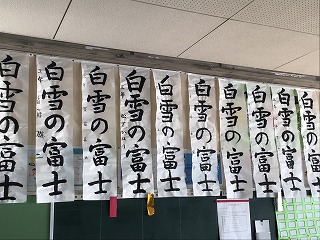 白雪の富士
白雪の富士
白雪の富士
白雪の富士
白雪の富士
白雪の富士
白雪の富士
白雪の富士
白雪の富士
白雪の富士